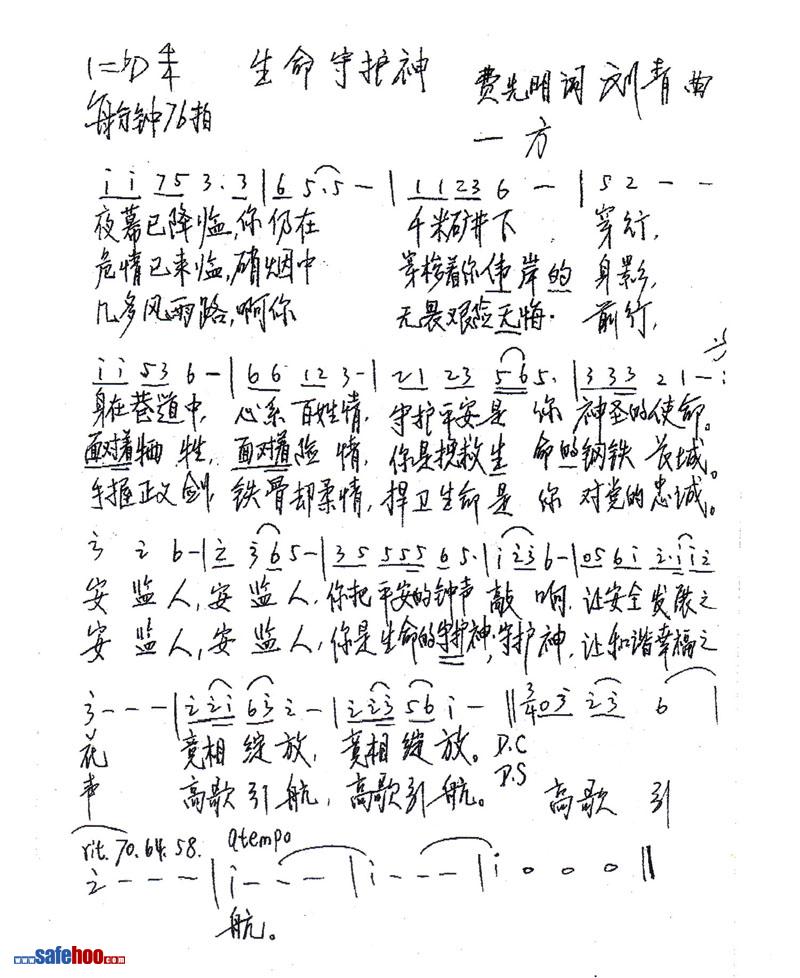 1=bD 4/4 生命守护神 费先明词 刘青曲
每分钟76拍 一方
i i 7 5 3. 3 | 6 5. 5 - | 1 1 2 3 6 - | 5 2 - -
夜幕已降临,你仍在 千米矿井下 穿行,
危情已来临,硝烟中 穿梭着你伟岸的 身影,
几多风雨路,啊你 无畏艰险无悔. 前行,
i i 5 3 6 - | 6 6 1 2 3 - | 2 1 2 3 5 6 5. | 3 3 3 2 1 - :
身在巷道中, 心系百姓情, 守护平安是 你 神圣的使命。
面对着牺牲, 面对着险情, 你是拯救生 命的钢铁长城。
手握正义剑, 铁骨却柔情, 捍卫生命是 你 对党的忠诚。
3 2 6 - | 2 3 6 5 - | 3 5 5 5 5 6 5. | i 2 3 6 - | 0 5 6 i 2. i i 2
安监人,安监人,你把平安的钟声敲响,让安全发展之
安监人,安监人,你是生命的守护神,守护神,让和谐幸福之
3 - - - | 2 2 i 6 3 2 - | 2 2 3 5 6 i - || 3/4 0 3 2 3 6 |
花 竞相绽放, 竞相绽放。D.C
声 高歌引航, 高歌引航。D.S 高歌 引
rit. 70. 64. 58. atempo
2 - - - | i - - - | i - - - | i 0 0 0 ||
航。
www.safehoo.com